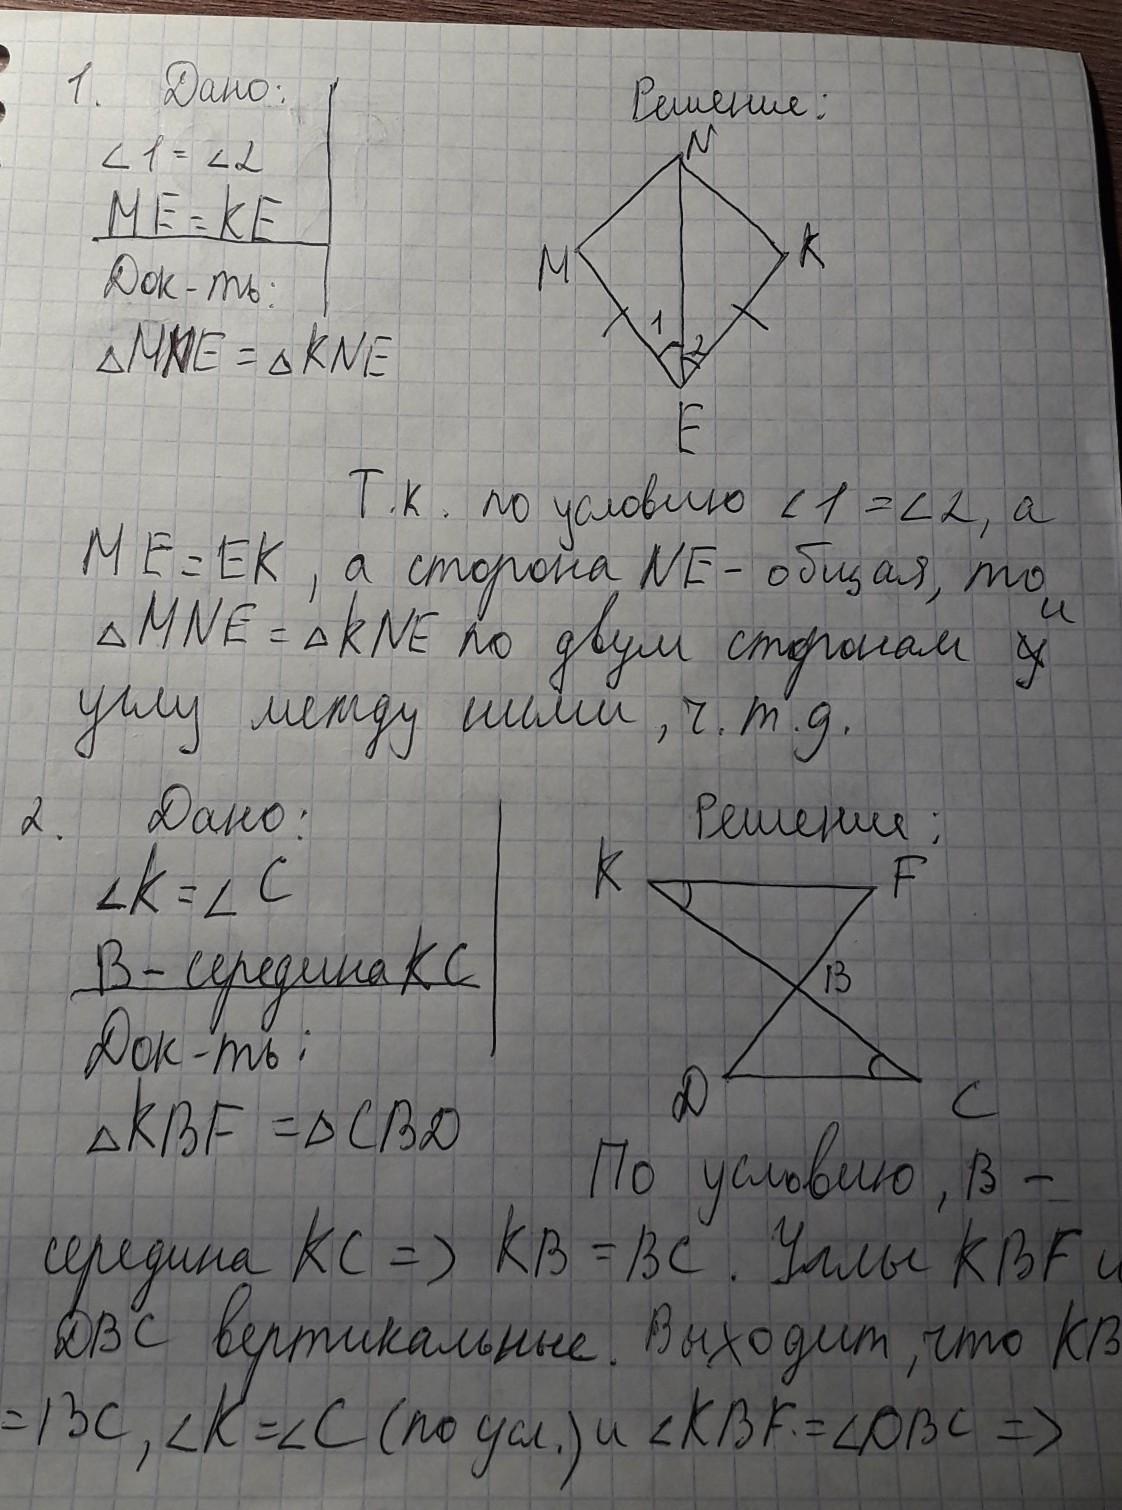 1. Дано:
Решение:
∠1 = ∠2
ME = KE
Док-ть:
△MNE = △KNE
N
M
K
1
2
E
Т.к. по условию ∠1 = ∠2, а
ME = EK, а сторона NE - общая, то
△MNE = △KNE по двум сторонам и
углу между ними, ч.т.д.
2. Дано:
Решение:
∠K = ∠C
B - середина KC
Док-ть:
△KBF = △CBD
K
F
B
D
C
По условию, B -
середина KC => KB = BC. Углы KBF и
DBC вертикальные. Выходит, что KB
= BC, ∠K = ∠C (по усл.) и ∠KBF = ∠DBC =>